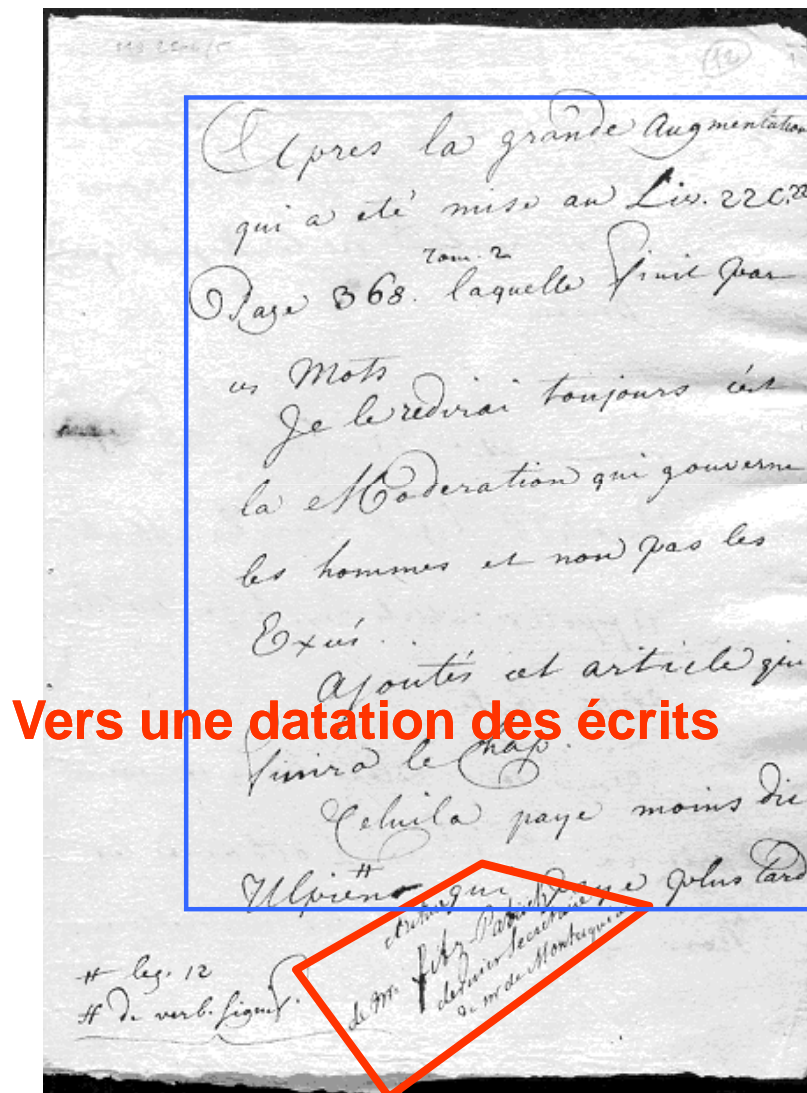 MS 2506/5
12
Apres la grande Augmentation
qui a eté mise au Liv. 22 C. 22
Tom. 2
Page 368. laquelle finit par
ces Mots
Je le redirai toujours c'est
la Moderation qui gouverne
les hommes et non pas les
Excés.
Ajoutés cet article qui
Vers une datation des écrits
finira le Chap.
Celuila paye moins dit
Ulpien # qui paye plus tard
ecriture
de Mr fitz-Patrick
dernier Secretaire
de mr de Montesquieu
# leg. 12
# De verb. signif.